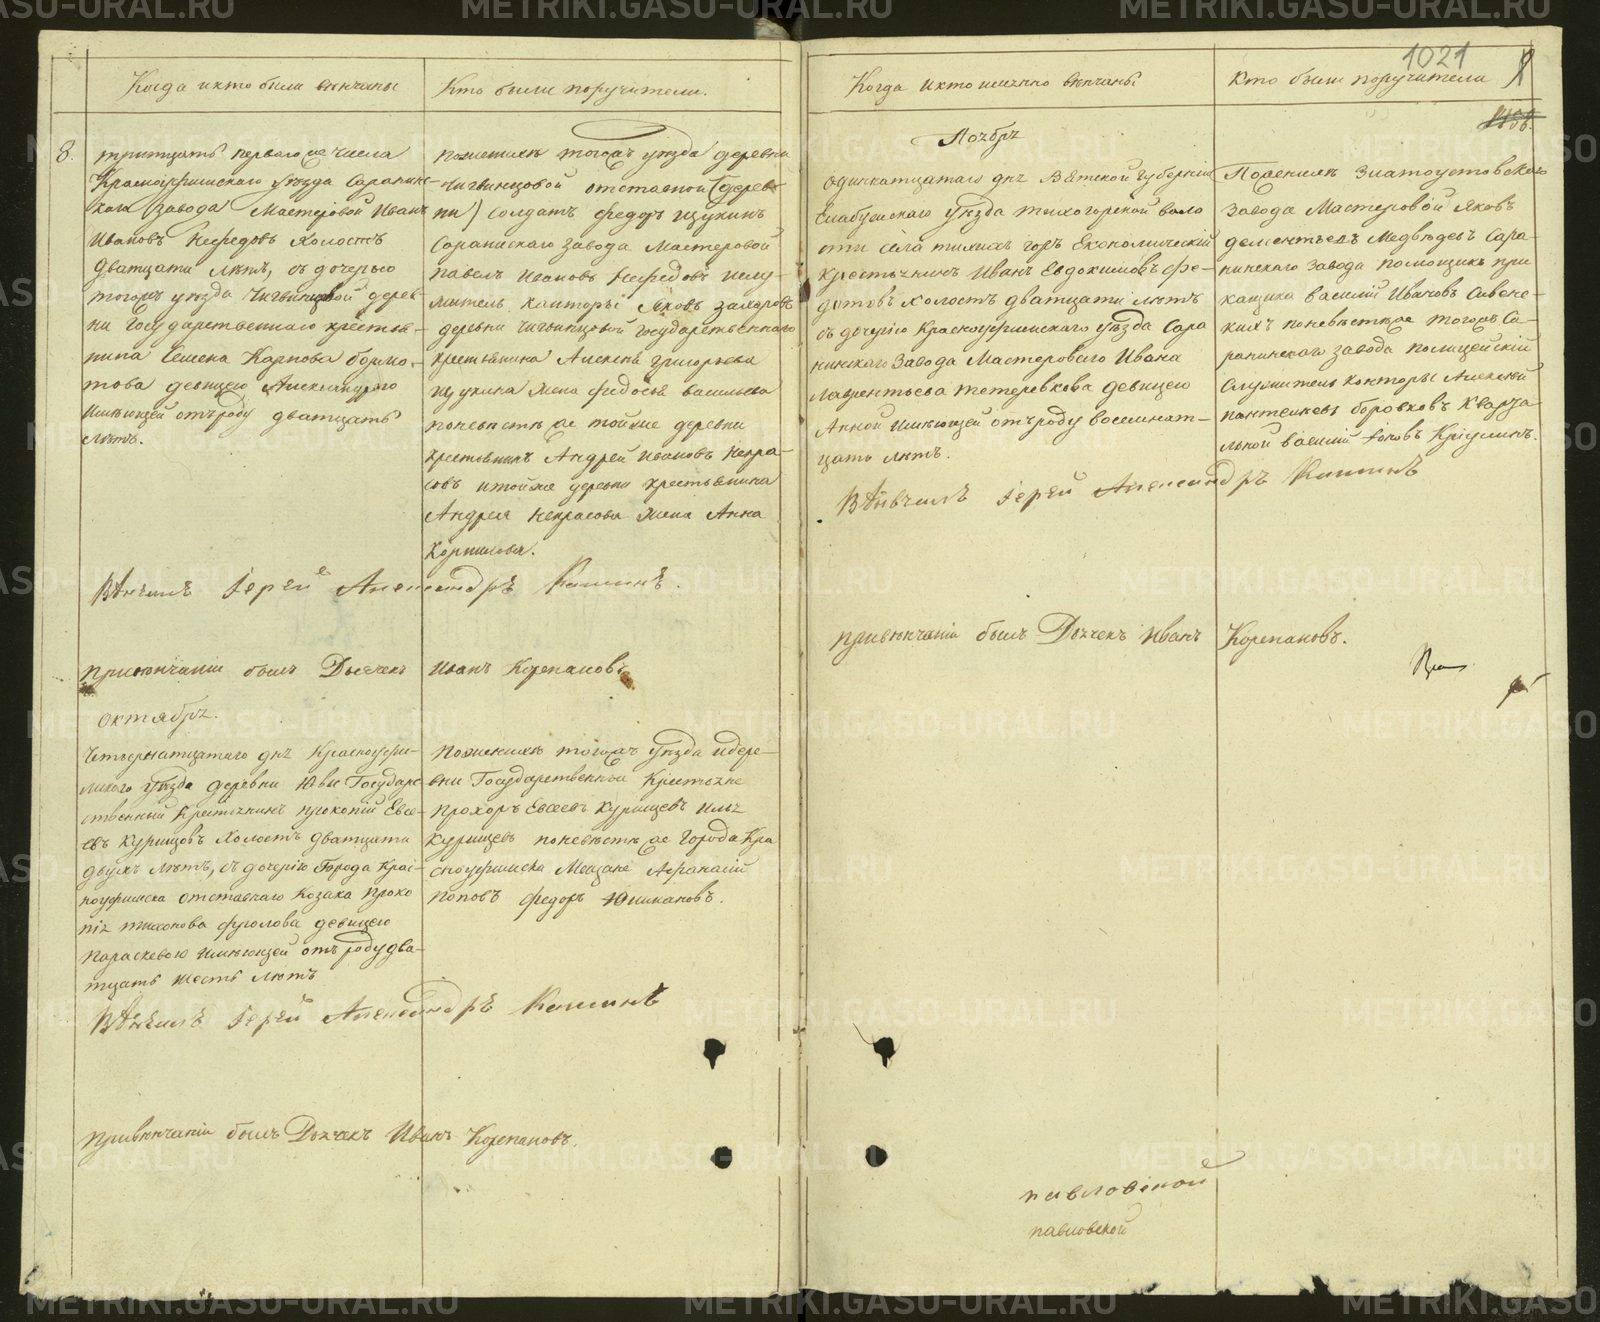 Когда и кто были вѣнчаны
Кто были поручители.
8.
тритцать перваго числа
Красноуфимскаго уѣзда Саранин-
скаго завода Мастеровой Иванъ
Ивановъ Нефедовъ холостъ
дватцати лѣтъ, съ дочерью
тогожъ уѣзда Чигвинцовой дерев-
ни Государственнаго крестья-
нина Семена Карпова Бормо-
това девицею Александрою
имѣющей отъ роду дватцать
лѣтъ.
по женихѣ тогожъ уѣзда деревни
Чигвинцовой отставной (дерев-
ни) солдатъ Федоръ Щукинъ
Саранинскаго завода Мастеровой
Павелъ Ивановъ Нефедовъ и слу-
житель конторы Яковъ Захаровъ
деревни Чигвинцовой Государственнаго
крестьянина Алексея Григорьева
Щукина жена Федосья Васильева
по невѣстѣ той же деревни
крестьянинъ Андрей Ивановъ Некра-
совъ и той же деревни крестьянина
Андрея Некрасова жена Анна
Корнилова.
Вѣнчалъ Іерей Александръ Кашинъ.
При вѣнчаніи былъ Дьячекъ Иванъ Корепановъ
Октябрь.
Четырнатцатаго дня Красноуфи-
мскаго уѣзда деревни Ювы Государс-
ственный Крестьянинъ Прокопій Евсе-
евъ Курицовъ холостъ дватцати
двухъ лѣтъ, съ дочерію Города Крас-
ноуфимска отставнаго Козака Проко
пія Тихонова Фролова девицею
Параскевою имѣющей отъ роду два-
тцать шесть лѣтъ
по женихѣ тогожъ уѣзда и дере-
вни Государственныи Крестьяне
Прохоръ Евсеевъ Курицевъ Илья
Курицевъ по невѣстѣ Города Кра
сноуфимска Мещане Афанасій
Поповъ Федоръ
Вѣнчалъ Іерей Александръ Кашинъ
При вѣнчаніи былъ Дьячекъ Иванъ Корепановъ.
1021
Когда и кто имянно вѣнчаны
Кто были поручители
Ноябрь
Одиннатцатаго дня Вятской Губерніи
Елабужскаго уѣзда Тихогорской воло
сти села Тихихъ горъ Економический
Крестьянинъ Иванъ Евдокимовъ Фе-
дотовъ холостъ дватцати лѣтъ
съ дочерію Красноуфимскаго уѣзда Сара
нинскаго Завода Мастероваго Ивана
Лаврентьева Тетеревкова девицею
Анной имѣющей отъ роду восемнат-
цать лѣтъ.
По женихѣ Златоустовскаго
Завода Мастеровой Яковъ
Дементьевъ Медвѣдевъ Сара-
нинскаго Завода помощикъ при
кащика Василий Ивановъ
по невѣстѣ тогожъ Са-
ранинскаго завода полицейскій
служитель конторы Алексей
Пантелеевъ Боровковъ
Василій
Вѣнчалъ Іерей Александръ Кашинъ
При вѣнчаніи былъ Дьячекъ Иванъ Корепановъ.
Павловской
павловской
METRIKI.GASO-URAL.RU